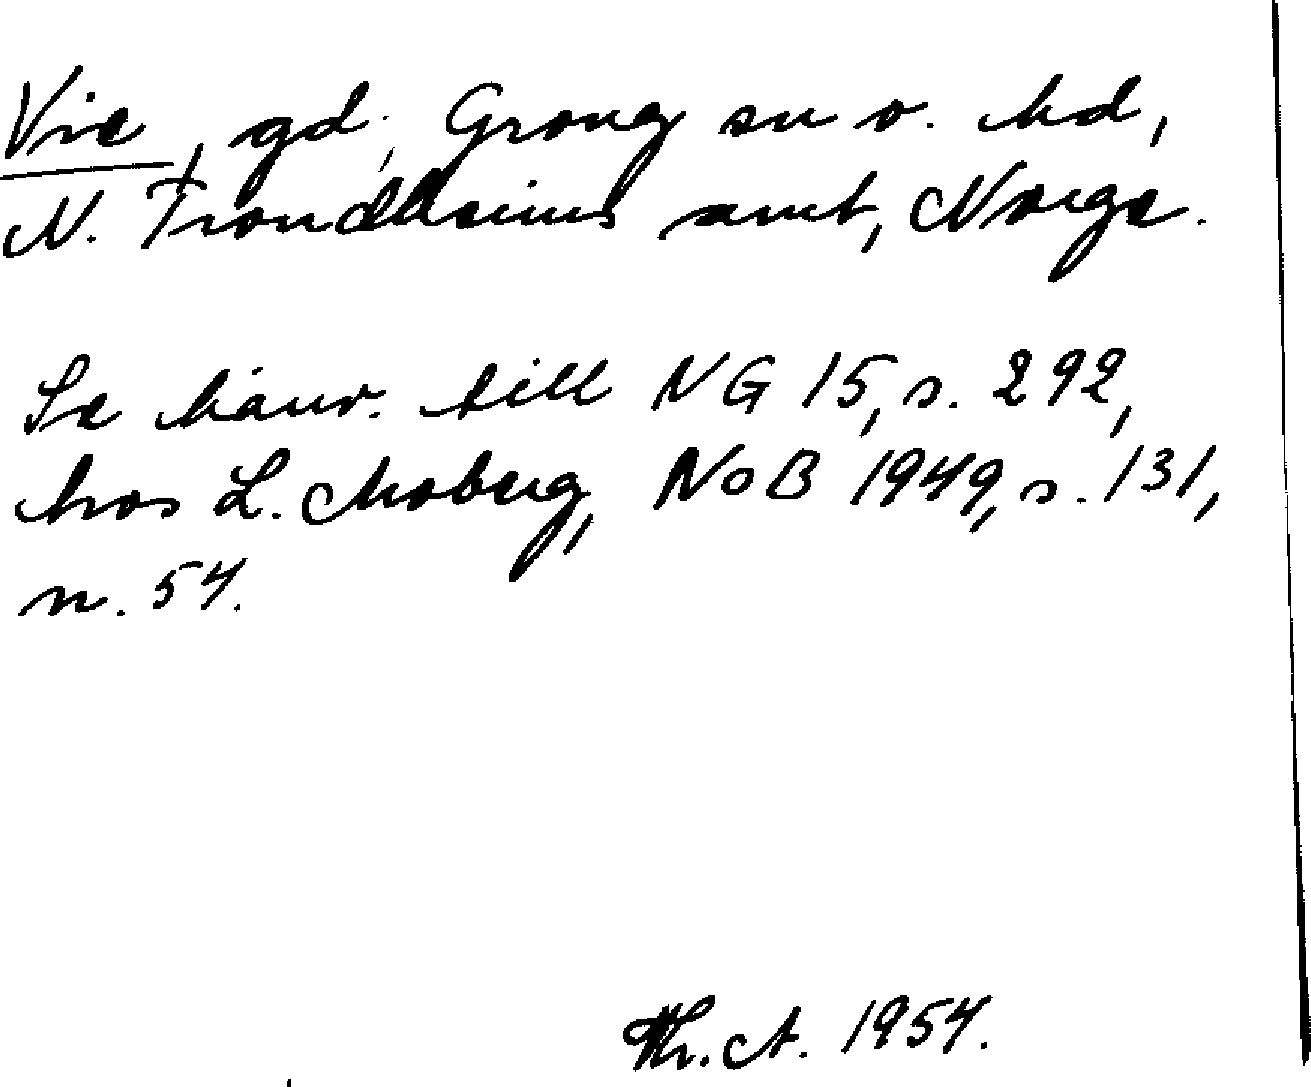 Vie, gd, Grong sn o. hd,
N. Trondheims amt, Norge.
Se hänv. till NG 15, s. 292,
hos L. Moberg, NoB 1949, s. 131,
n. 54.
Th. A. 1954.